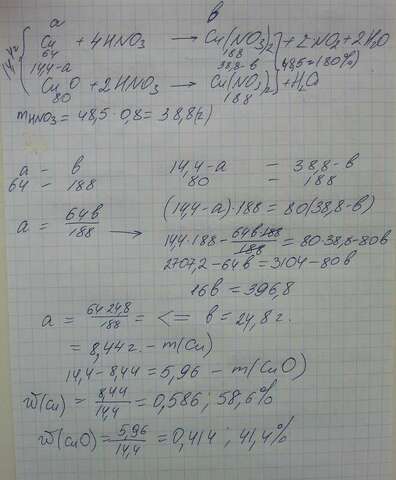 a в
14,4г { Cu + 4HNO3 → Cu(NO3)2 + 2NO2 + 2H2O
64 188
14,4-a 38,8-в } 48,5 = (80%)
CuO + 2HNO3 → Cu(NO3)2 + H2O
80 188
mHNO3 = 48,5 · 0,8 = 38,8(г)
a = в 14,4-a = 38,8-в
64 - 188 80 = 188
a = 64в/188 → (14,4-a)·188 = 80(38,8-в)
14,4·188 - 64в·188/188 = 80·38,8-80в
2707,2-64в = 3104-80в
16в = 396,8
a = 64·24,8/188 = <= в = 24,8г.
= 8,44г. - m(Cu)
14,4-8,44 = 5,96 - m(CuO)
w(Cu) = 8,44/14,4 = 0,586; 58,6%
w(CuO) = 5,96/14,4 = 0,414; 41,4%